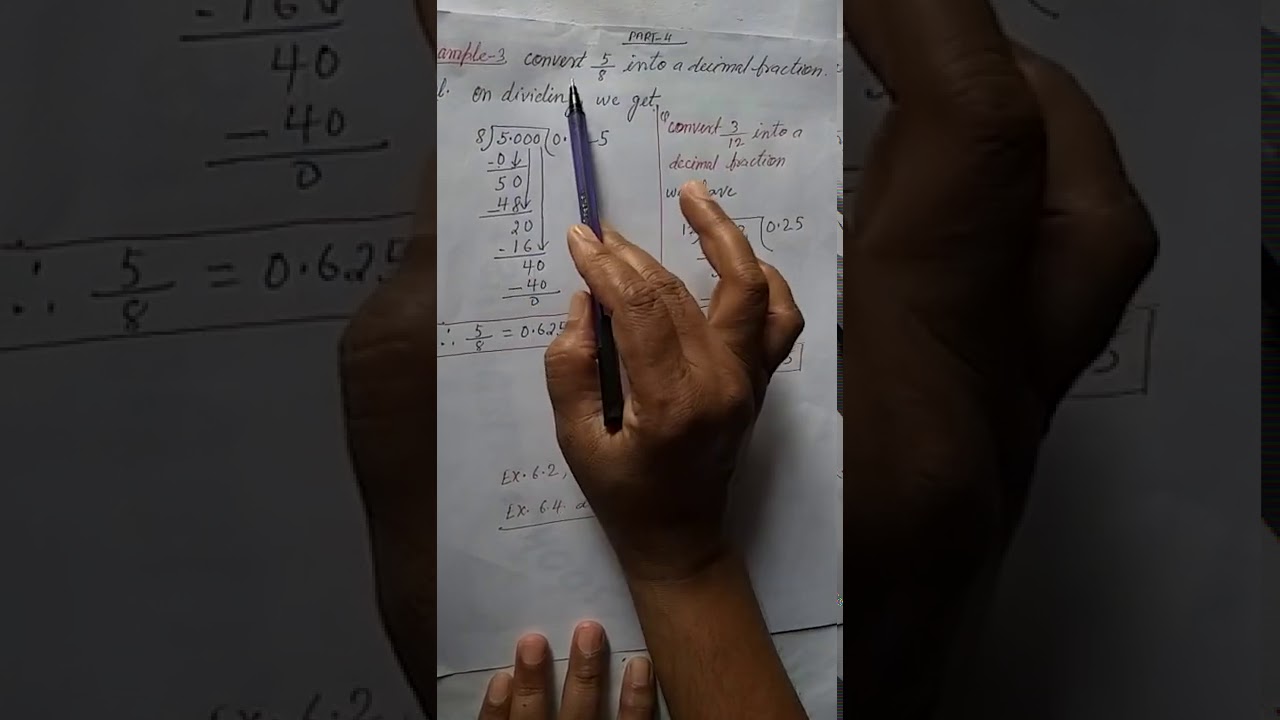 PART-4
ample-3 convert 5/8 into a decimal fraction.
On dividing we get
8)5.000(0. 5
-0
50
-48
20
-16
40
-40
0
∴ 5/8 = 0.625
convert 3/12 into a
decimal fraction
we have
0.25
Ex. 6.2,
Ex. 6.4.